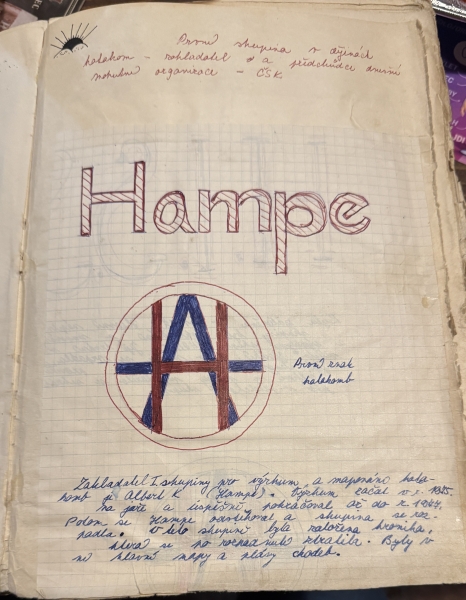 První skupina v dějinách
katakomb - zakladatel a předchůdce dnešní
mohutné organizace - ČSK.
Hampe
AH
První znak
katakomb
Zakladatel I skupiny pro výzkum a mapování kata-
komb je Albert K (Hampe). Výzkum začal v r. 1985.
na jaře a úspěšně pokračoval až do r
Potom se Hampe a skupina se roz-
padla. V této skupině byla založena kronika,
která se po rozpadnutí ztratila. Byly v
ní hlavní mapy a plány chodeb.